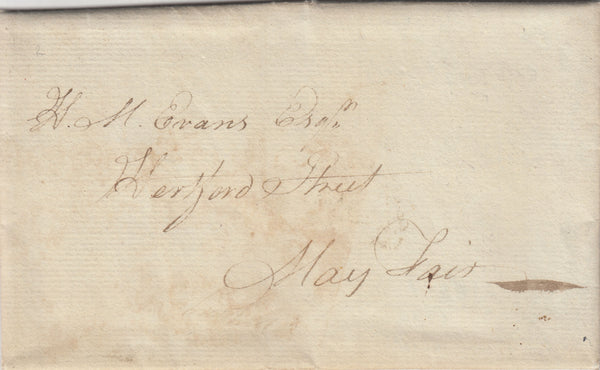 H. M. Evans Esqr
Hertford Street
May Fair